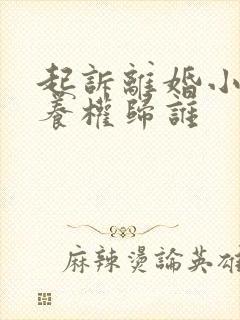 起訴離婚小
養權歸誰
麻辣燙論英雄